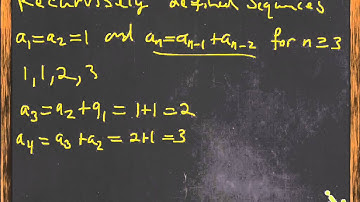 Recursively defined sequences
a₁=a₂=1 and aₙ=aₙ₋₁+aₙ₋₂ for n≥3
1,1,2,3
a₃=a₂+a₁=1+1=2
a₄=a₃+a₂=2+1=3